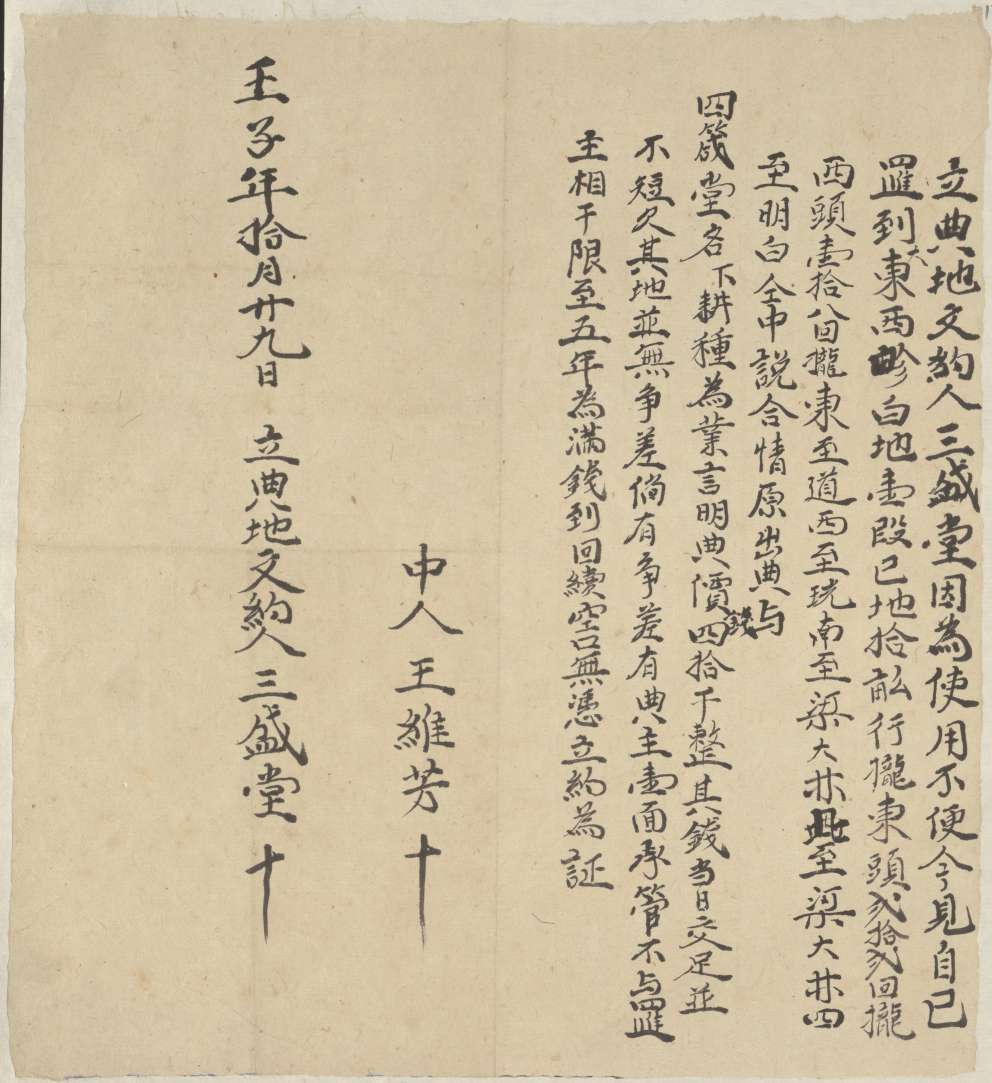 立典地文約人三盛堂因為使用不便今見自己
置到大東西畛白地壹段己地拾畝行攏東頭弍拾弍回攏
西頭壹拾八回攏東至道西至玩南至渠大林北至渠大林四
至明白仝中說合情原出典与
四箴堂名下耕種為業言明典價錢四拾千整其錢当日交足並
不短欠其地並無争差倘有争差有典主壹面承管不与置
主相干限至五年為滿錢到回續空口無憑立約為証
中人 王維芳 十
壬子年拾月廿九日 立典地文約人 三盛堂 十